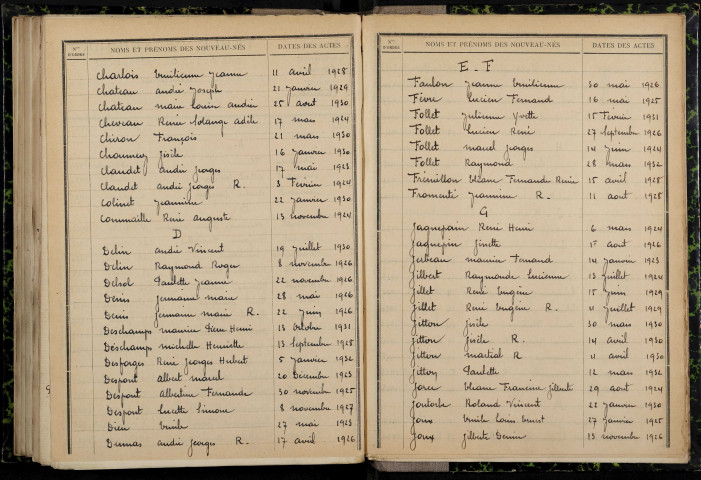 Nos D'ORDRE NOMS ET PRÉNOMS DES NOUVEAU-NÉS DATES DES ACTES
Charlois Emilienne Jeanne 11 avril 1928
Chateau andré Joseph 21 Janvier 1929
Chateau marie Louise andrée 25 aout 1930
Chevceau Renée Solange adèle 17 mars 1924
Chiron François 21 mars 1930
Chaumery Gisèle 16 Janvier 1930
Claudet andré Georges 17 mai 1923
Claudet andré Georges R. 3 Fevrier 1924
Colinet Jeannine 22 Janvier 1930
Commaille René auguste 13 novembre 1924
D
Delin andré Vincent 19 Juillet 1930
Delin Raymond Roger 8 novembre 1926
Delsol Paulette Jeanne 22 novembre 1926
Denis Germaine marie 28 mai 1926
Denis Germaine marie R. 22 Juin 1926
Deschamps maurice Pierre Henri 13 octobre 1931
Deschamps michelle Henriette 13 septembre 1925
Desforges René Georges Hubert 5 Janvier 1932
Despont Albert marcel 20 Décembre 1923
Despont Albertine Fernande 30 novembre 1925
Despont Lucette Simone 8 novembre 1927
Dieu Emile 27 mai 1923
Dumas andré Georges R. 17 avril 1926
Nos D'ORDRE NOMS ET PRÉNOMS DES NOUVEAU-NÉS DATES DES ACTES
E. F
Faulon Jeanne Emilienne 30 mai 1926
Fèvre Lucien Fernand 16 mai 1925
Follet Julienne Yvette 15 Fevrier 1931
Follet Lucien René 27 septembre 1926
Follet marcel Georges 14 Juin 1924
Follet Raymond 28 mars 1932
Frémillon Eliane Fernande Renée 15 avril 1928
Fromenté Jeannine R. 11 aout 1928
G
Gagnepain René Henri 6 mars 1924
Gagnepin Ginette 1er aout 1926
Gerbeau maurice Fernand 14 Janvier 1923
Gilbert Raymonde Lucienne 13 Juillet 1924
Gillet René Eugène 15 Juin 1929
Gillet René Eugène R. 11 Juillet 1929
Gitton Gisèle 30 mars 1930
Gitton Gisèle R. 14 avril 1930
Gitton martial R 11 avril 1930
Gitton Paulette 12 mars 1932
Eliane Francine Gilberte 29 aout 1924
Roland Vincent 22 Janvier 1930
Goux Emile Louis Ernest 27 Janvier 1925
Goux Gilberte Denise 13 novembre 1926